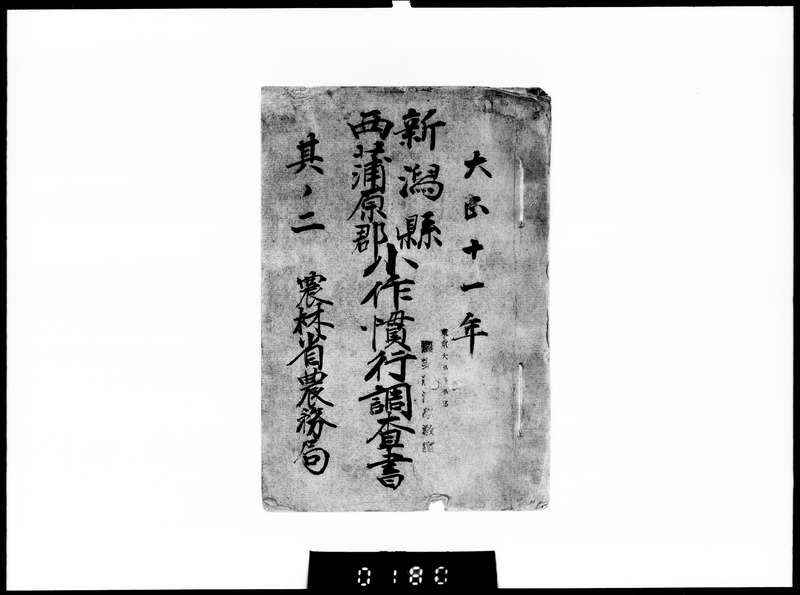 大正十一年
新潟縣
西蒲原郡
小作慣行調査書
其ノ二
農林省農務局
東京大
0180